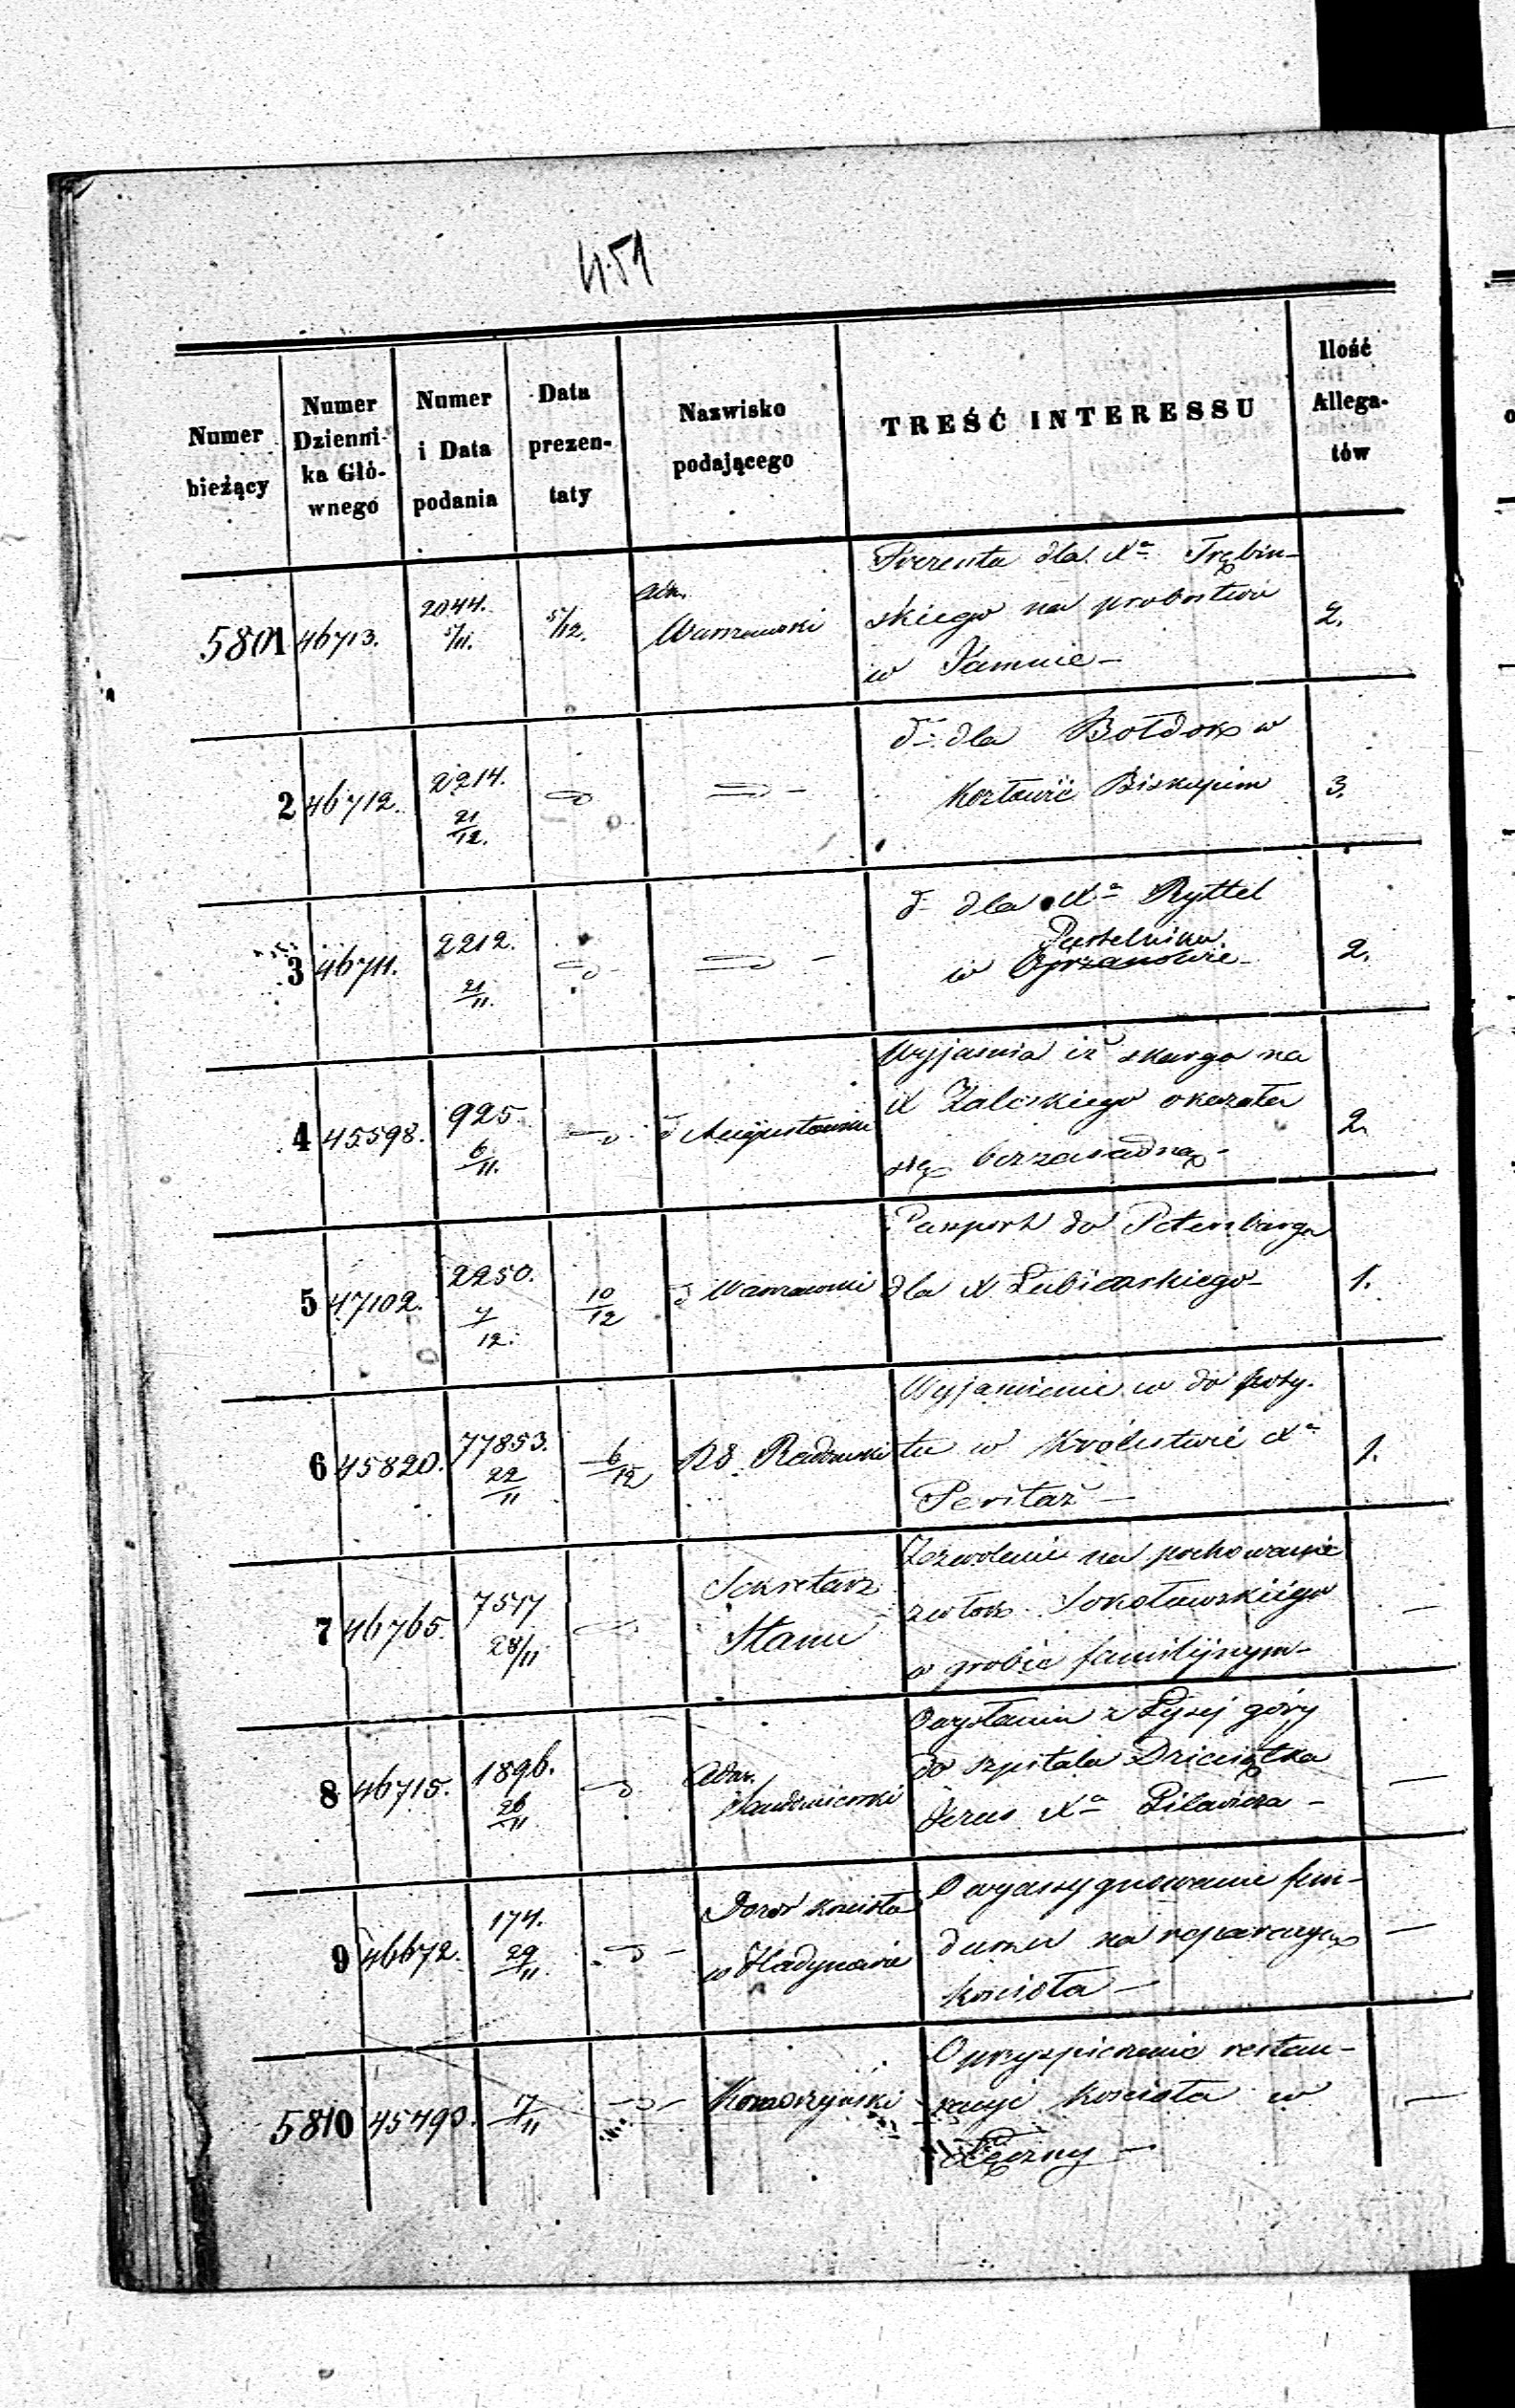 451
Numer
bieżący
Numer
Dzienni-
ka Głó-
wnego
Numer
i Data
podania
Data
prezen-
taty
Nazwisko
podającego
TREŚĆ INTERESSU
Ilość
Allega-
tów
5801 46713. 2044. 5/11. 5/12. Adm. Warszawski
Prezenta dla Xa Trębin-
skiego na probostwo
w
2.
2 46712. 2214. 21/12.
do dla Bołdok w
Biskupim
3.
3 46711. 2212. 21/11.
d- dla Xa Ryttel
Pustelnika
w
2.
4 45598. 925. 6/11. d Augustowski
Wyjasnia iż skarga na
X Zaleskiego okazała
się bezzasadną -
2.
5 47102. 2250. 7/12. 10/12 d Warszawski
Paszport do Petersburga
dla X Lubicarskiego -
1.
6 45820. 77853. 22/11 6/12 RG. Radomski
Wyjasnienie w do poby-
tu w Królestwie Xa
Peritaż -
1.
7 46765. 28/11 Sekretarz
Stanu
Zezwolenie na pochowanie
zwłok Sokołowskiego
w grobie familijnym -
—
8 46715. 1896. 26/11 Adm.
Sandomierski
O wysłaniu z Łysej góry
do szpitala Dzieciątka
Jezus Xa Pilawicza -
—
9 46672. 174. 29/11. Dozór kościoła
w Hadynowie
O wyassygnowanie fun-
duszu na reparacyę
kościoła -
—
5810 45490. 17/11 Komorzyński
O przyspieszenie restau-
racyi kościoła w
Łęczny -
—